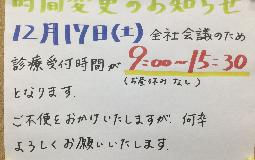 時間変更のお知らせ
12月17日(土) 全社会議のため
診療受付時間が 9:00〜15:30
(お昼休みなし)
となります.
ご不便をおかけいたしますが、何卒
よろしくお願いいたします.